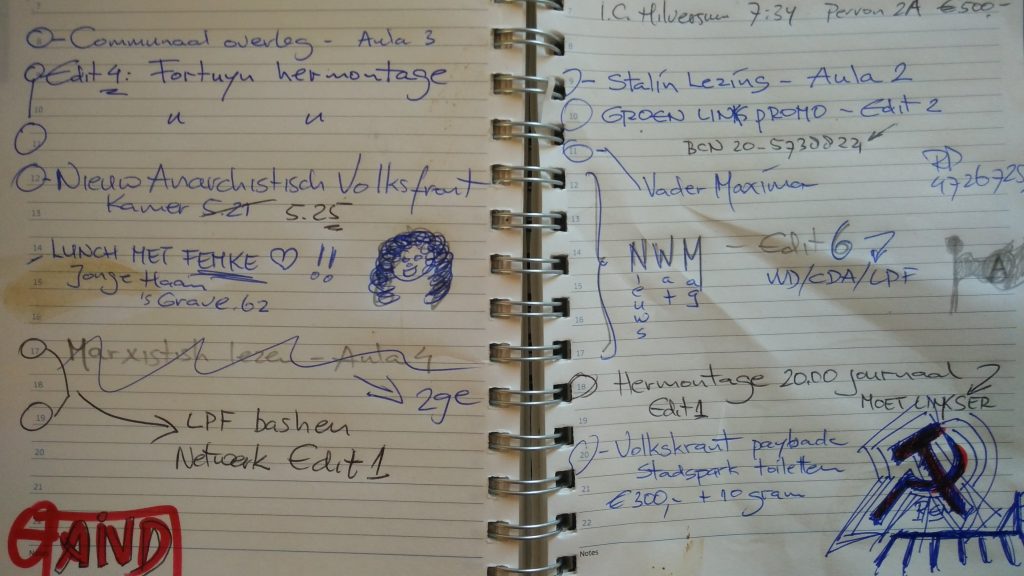 Communaal overleg - Aula 3
Edit 4: Fortuyn hermontage
" "
10
11
12 Nieuw Anarchistisch Volksfront
Kamer 5.21 5.25
13
14 LUNCH MET FEMKE ♡ !!
Jonge Haan
15
's Grave.62
16
17 Marxistish lezen - Aula 4
2ge
18
19
LPF bashen
20
Netwerk Edit 1
21
AIND
I.C. Hilversum 7:34 Perron 2A €500,-
8
9 - Stalin Lezing - Aula 2
10 GROEN LINKS PROMO - Edit 2
BCN 20-5738824
11
Vader Maxima
4726725
12
13
14 NWM - Edit 6
Nieuws Wat Mag
WD/CDA/LPF
A
15
16
17
18 Hermontage 20.00 journaal
Edit 1
MOET LINKSER
19
20 - Volkskrant payback
Stadspark toiletten
21
€300,- + 10 gram
22
Notes